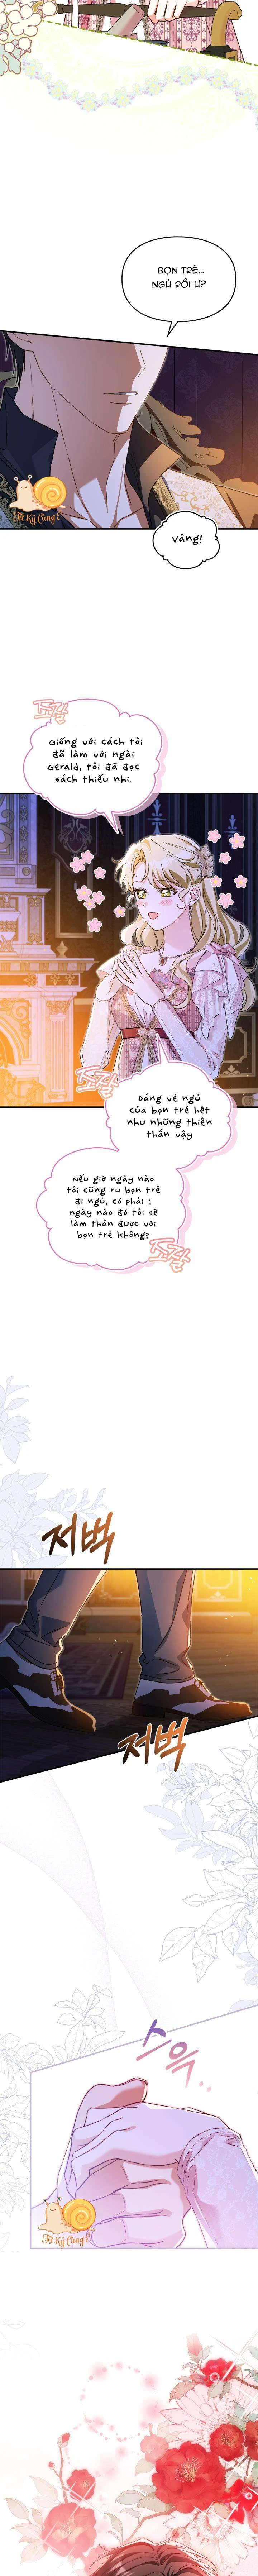 BỌN TRẺ...
NGỦ RỒI Ư?
Tử Kỳ Cung
Vâng!
조잘
Giống với cách tôi
đã làm với ngài
Gerald, tôi đã đọc
sách thiếu nhi.
조잘
Dáng vẻ ngủ
của bọn trẻ hệt
như những thiên
thần vậy
Nếu giờ ngày nào
tôi cũng ru bọn trẻ
đi ngủ, có phải 1
ngày nào đó tôi sẽ
làm thân được với
bọn trẻ không?
조잘
저벅
저벅
스윽..
Tử Kỳ Cung